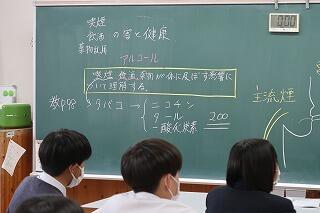 喫煙
飲酒 の害と健康
薬物乱用
アルコール
喫煙、飲酒、薬物が体に及ぼす影響に
ついて理解する。
教P98
タバコ → ニコチン
タール
一酸化炭素
200
主流煙